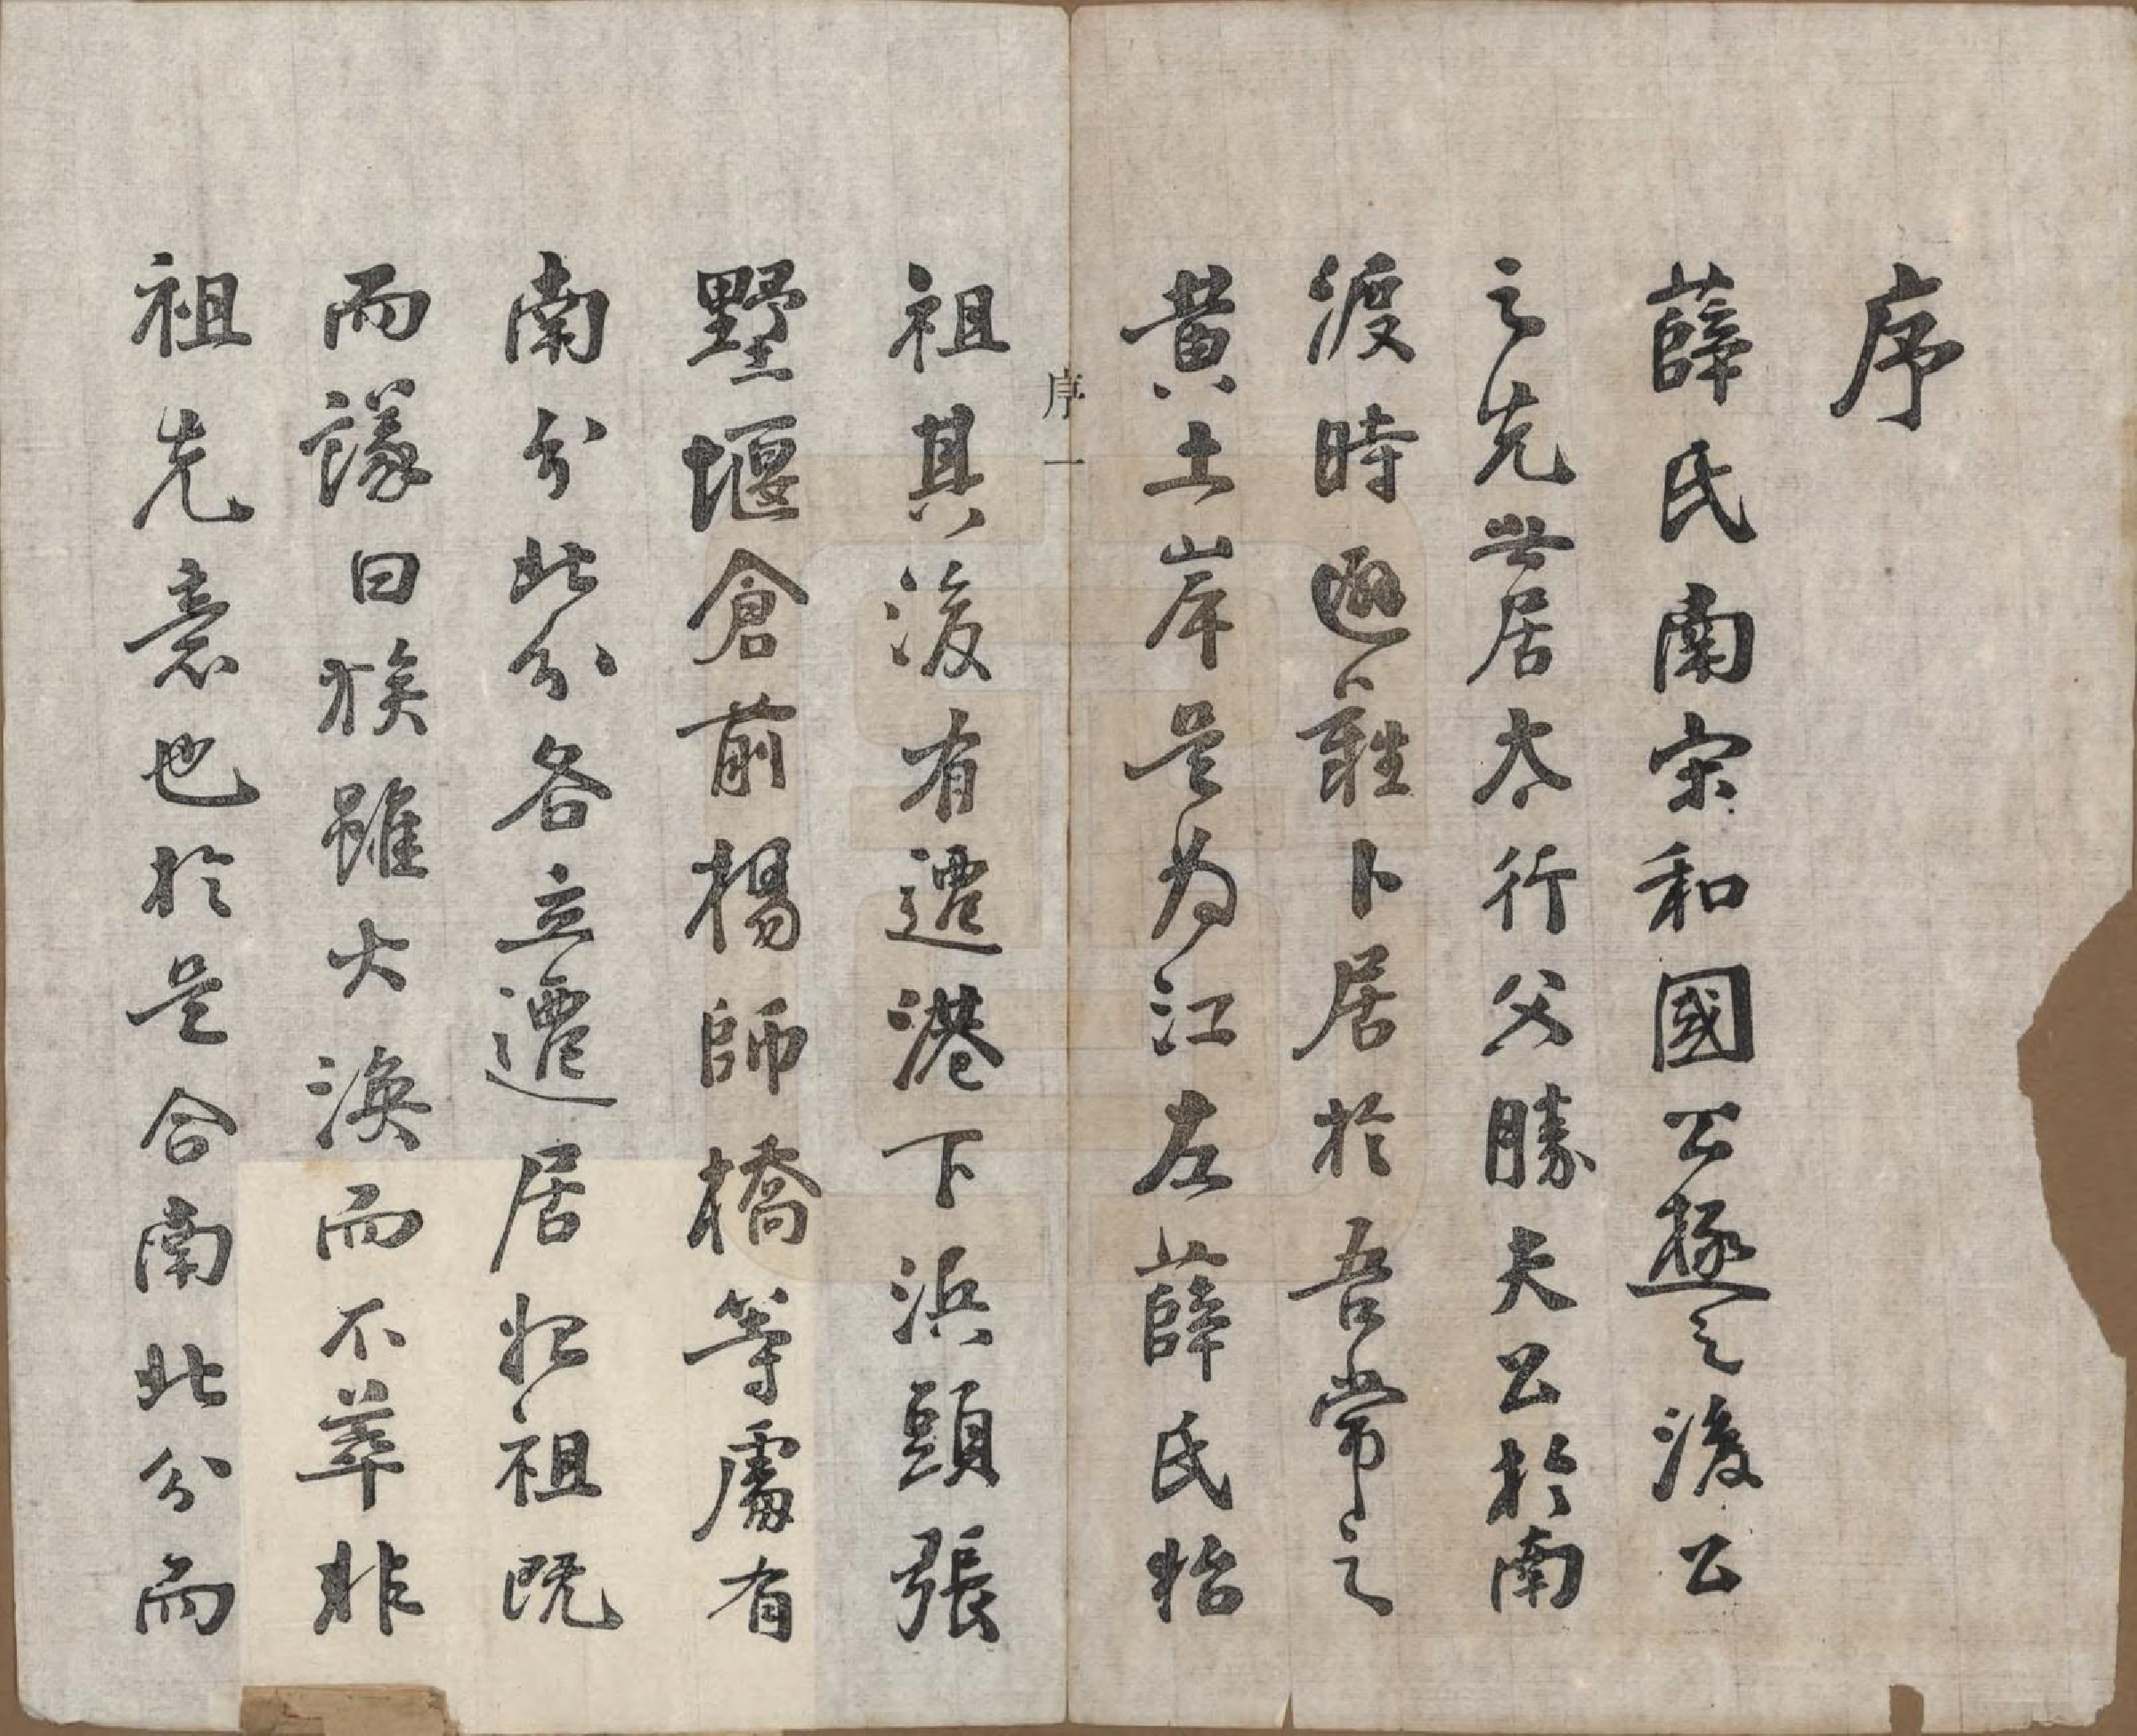 序
薛氏南宋和國公極之後公
之先世居太行父勝夫公於南
渡時避難卜居於吾常之
黃土岸是為江左薛氏始
序一
祖其後有遷港下浜頭張
墅堰倉前楊師橋等處有
南分北分各立遷居始祖既
而議曰族雖大渙而不萃非
祖先意也於是合南北分而